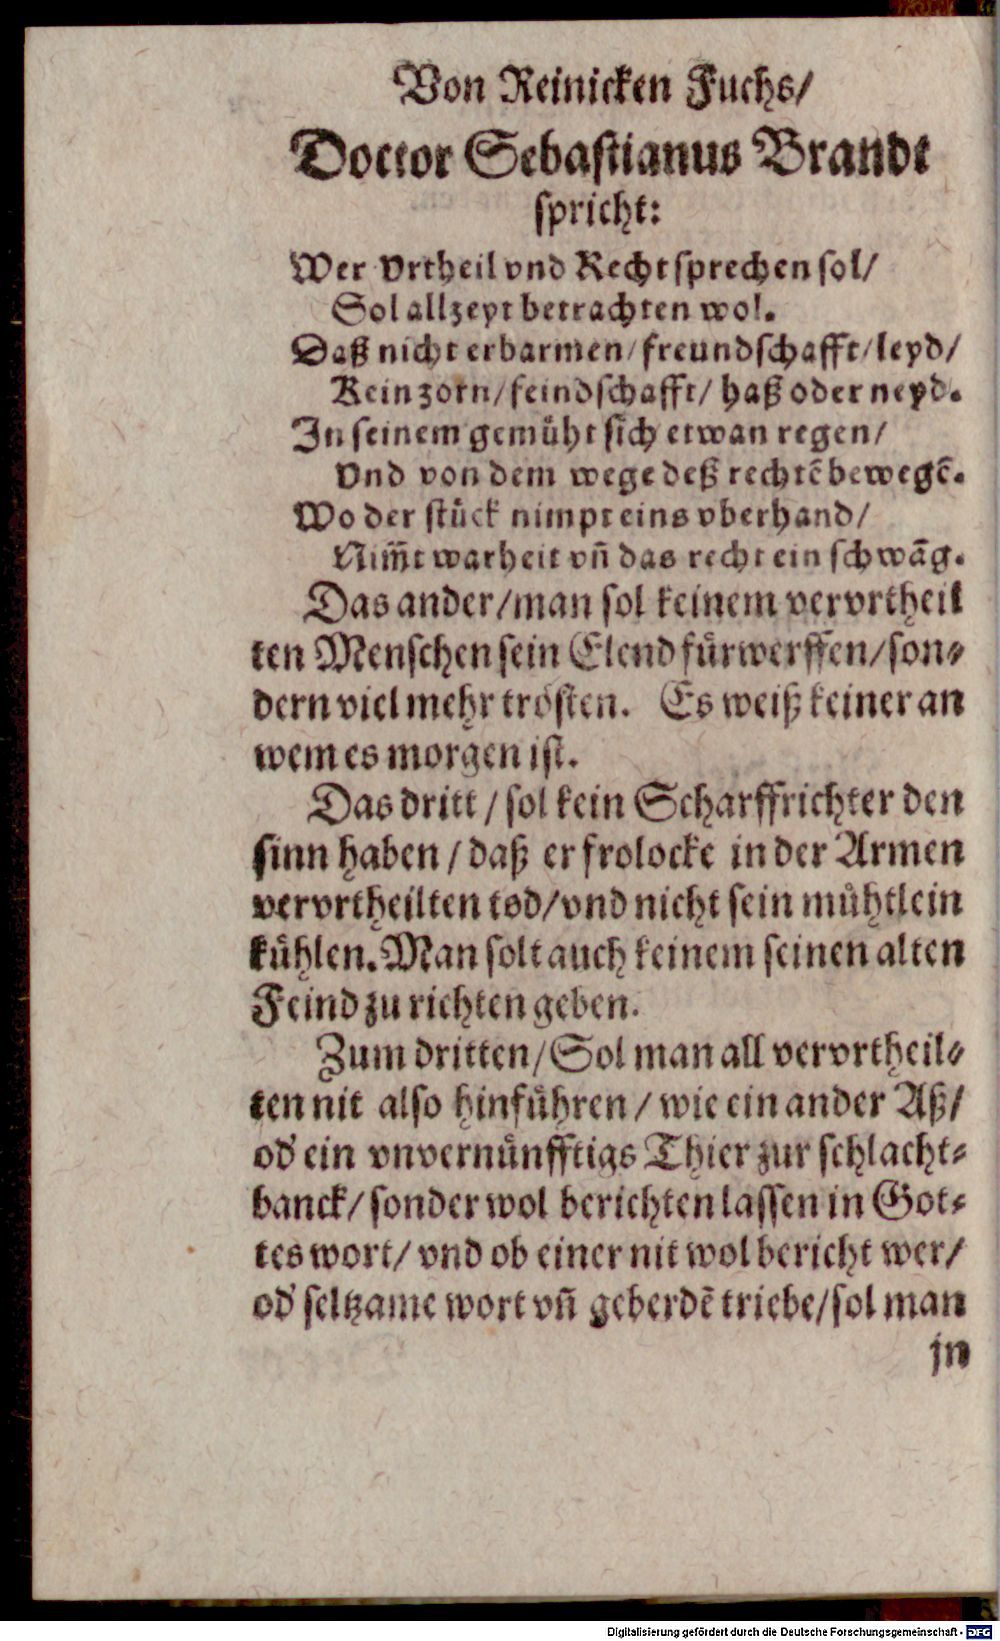 Von Reinicken Fuchs/
Doctor Sebastianus Brandt
spricht:
Wer Vrtheil vnd Recht sprechen sol/
Sol allzeyt betrachten wol.
Daß nicht erbarmen/freundschafft/leyd/
Kein zorn/feindschafft/ haß oder neyd.
In seinem gemüht sich etwan regen/
Vnd von dem wege deß rechtē bewegē.
Wo der stück nimpt eins vberhand/
Nim̄t warheit vñ das recht ein schwāg.
Das ander/man sol keinem vervrtheil
ten Menschen sein Elend fürwerffen/son⸗
dern viel mehr trösten. Es weiß keiner an
wem es morgen ist.
Das dritt/ sol kein Scharffrichter den
sinn haben/ daß er frolocke in der Armen
vervrtheilten tod/vnd nicht sein mühtlein
kühlen. Man solt auch keinem seinen alten
Feind zu richten geben.
Zum dritten/Sol man all vervrtheil⸗
ten nit also hinführen/ wie ein ander Aß/
od' ein vnvernünfftigs Thier zur schlacht⸗
banck/ sonder wol berichten lassen in Got⸗
tes wort/ vnd ob einer nit wol bericht wer/
od' seltzame wort vñ geberdē triebe/sol man
jn
Digitalisierung gefördert durch die Deutsche Forschungsgemeinschaft - DFG